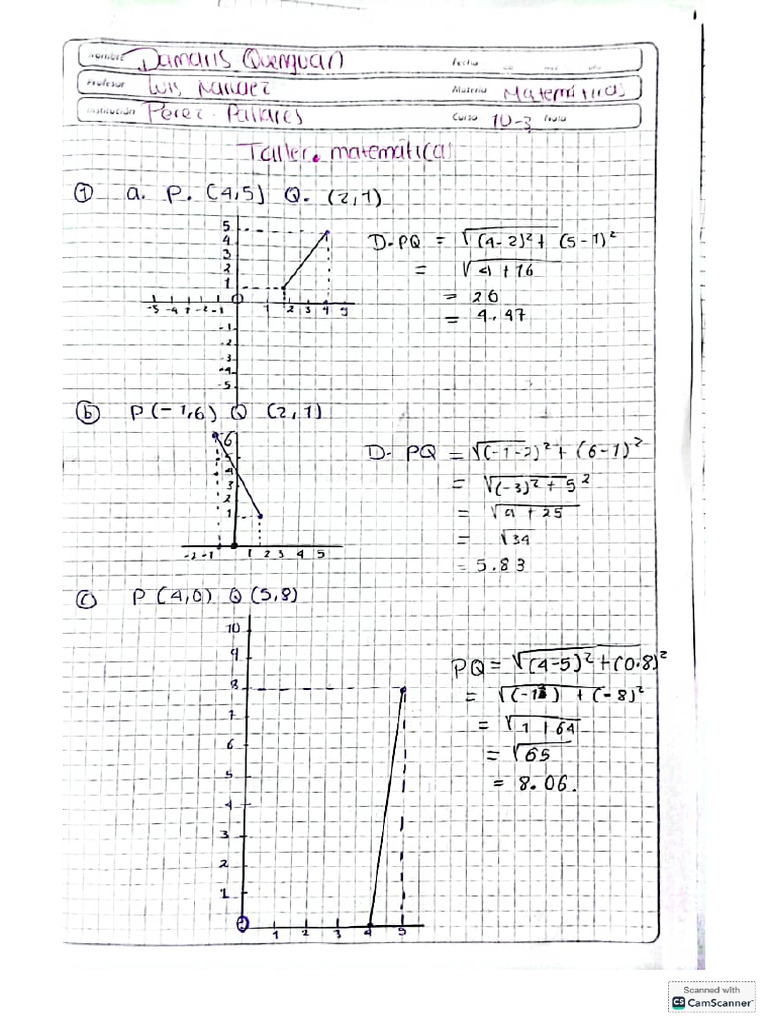 Nombre Damaris Quenguan Fecha
Profesor Luis Narvaez Materia Matemáticas
Institución Perez Pallares Curso 10-3 Nota
Taller. matemáticas
① a. P. (4,5) Q. (2,1)
D-PQ = √(4-2)²+ (5-1)²
= √4+16
= 20
= 4.47
5
4
3
2
1
-5 -4 3 -2 -1 0 1 2 3 4 5
-1
-2
-3
-4
-5
ⓑ P(-1,6) Q (2,1)
D- PQ = √(-1-2)²+ (6-1)²
= √(-3)²+5²
= √9+25
= √34
= 5.83
6
5
4
3
2
1
-2 -1 1 2 3 4 5
ⓒ P (4,0) Q (5,8)
PQ = √(4-5)²+(0.8)²
= √(-1) + (-8)²
= √1+64
= √65
= 8.06.
10
9
8
7
6
5
4
3
2
1
0 1 2 3 4 5
Scanned with
CS CamScanner